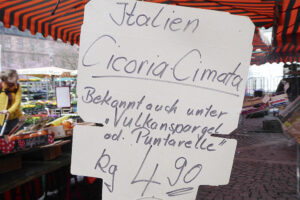 Italien
Cicoria-Cimata
Bekannt auch unter
„Vulkanspargel
od. Puntarelle"
kg 4 90